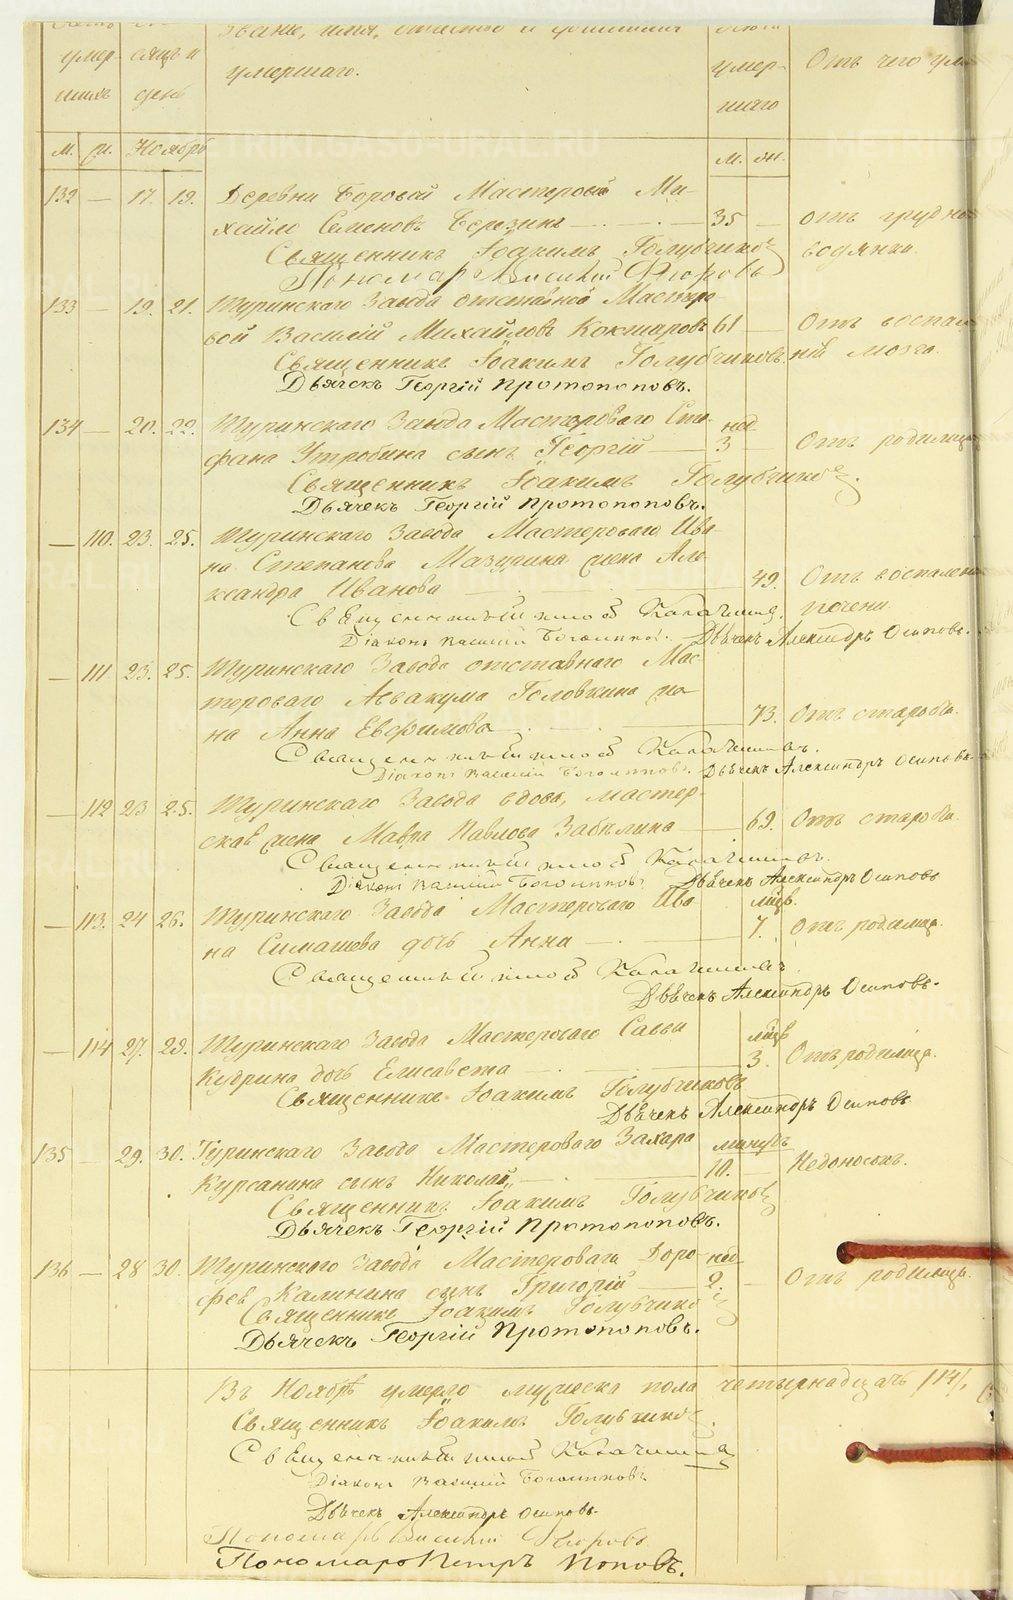 Званіе, имя, отчество и фамилия
умер- сяцъ и умершаго. умер- Отъ чего
шихъ день шаго
м. ж. Ноября м. ж.
132 — 17. 19. Деревни Боровой Мастеровой Ми-
хайло Семеновъ Березинъ — 35 — отъ грудной
Священникъ Іоакимъ Голубчиковъ водянки.
Пономарь Василій Флоровъ
133 — 19. 21. Туринскаго Завода отставной Мастеро-
вой Василій Михайловъ Кокшаровъ 61 — Отъ воспале-
Священникъ Іоакимъ Голубчиковъ нія мозга.
Дьячекъ Георгій Протопоповъ.
134 — 20. 22. Туринскаго Завода Мастероваго Сте- нед
фана Утробина сынъ Георгій — 3 — Отъ родимца
Священникъ Іоакимъ Голубчиковъ.
Дьячекъ Георгій Протопоповъ.
— 110. 23. 25. Туринскаго Завода Мастероваго Ива-
на Степанова Мазурина жена Але-
ксандра Иванова — 49. Отъ воспаленія
печени
Діаконъ Василій Дьячекъ Александръ Осиповъ.
— 111 23. 25. Туринскаго Завода отставнаго Мас-
тероваго Аввакума Головкина же-
на Анна Евфимова — 73. Отъ старости.
Діаконъ Василій Дьячекъ Александръ Осиповъ
— 112 23 25. Туринскаго Завода вдова, мастер-
ская жена Мавра Павлова Забѣлина — 69. Отъ старости.
Діаконъ Василій Дьячекъ Александръ Осиповъ
— 113. 24 26. Туринскаго Завода Мастероваго Ива- мѣс.
на Симашева дочь Анна — 7. Отъ родимца.
Дьячекъ Александръ Осиповъ.
— 114 27. 29. Туринскаго Завода Мастероваго Саввы мѣс
Кудрина дочь Елисавета — 3. Отъ родимца.
Священникъ Іоакимъ Голубчиковъ
Дьячекъ Александръ Осиповъ
135 — 29. 30. Туринскаго Завода Мастероваго Захара минутъ
Курсанина сынъ Николай, — 10. — Недоносокъ.
Священникъ Іоакимъ Голубчиковъ
Дьячекъ Георгій Протопоповъ.
136 — 28 30. Туринскаго Завода Мастероваго Доро- не
фея Калинина сынъ Григорій 2. — Отъ родимца.
Священникъ Іоакимъ Голубчиковъ
Дьячекъ Георгій Протопоповъ.
Въ Ноябрѣ умерло мужеска пола четырнадцать /14/,
Священникъ Іоакимъ Голубчиковъ.
Діаконъ Василій
Дьячекъ Александръ Осиповъ
Пономарь Василій Флоровъ
Пономарь Петръ Поповъ.
METRIKI.GASO-URAL.RU